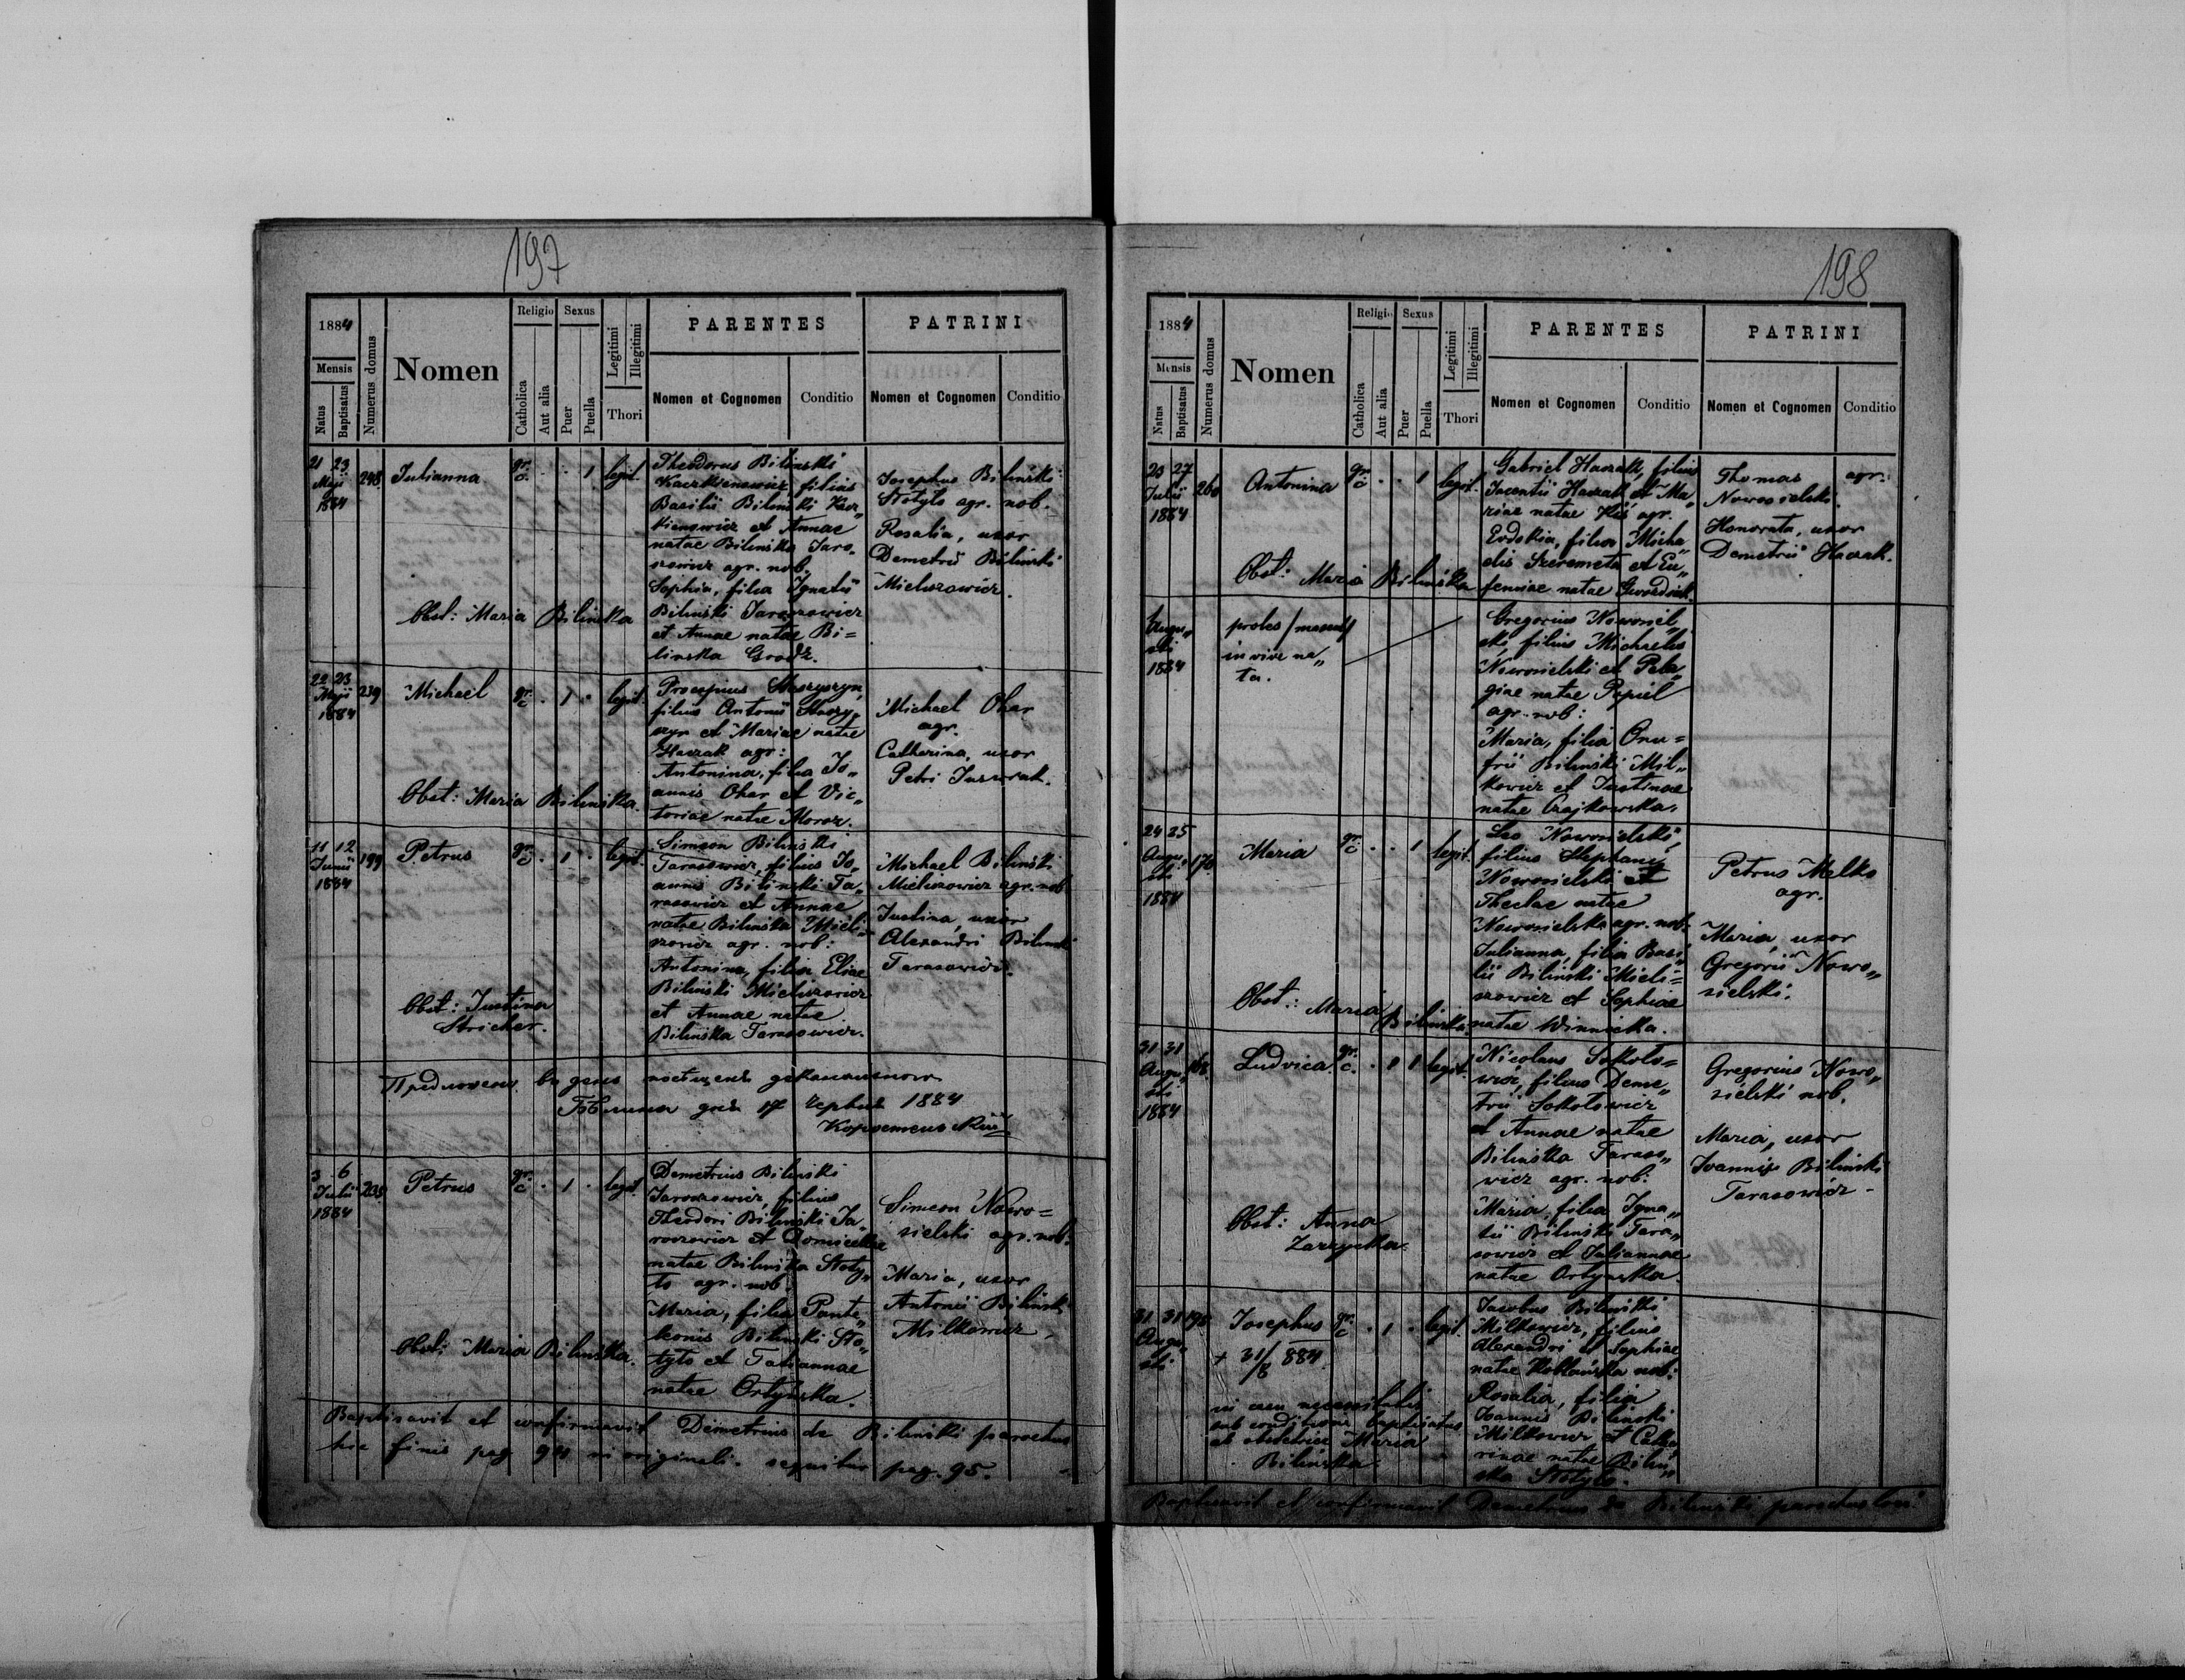 197
1884
Mensis
Natus
Baptisatus
Numerus domus
Nomen
Religio
Catholica
Aut alia
Sexus
Puer
Puella
Legitimi
Illegitimi
Thori
PARENTES
Nomen et Cognomen
Conditio
PATRINI
Nomen et Cognomen
Conditio
21 23
Maji
1884
248
Julianna
gr. c.
1
legit.
Theodorus Biliński
filius
Basilii Biliński
et Annae
natae Bilinska Jaro„
szowicz agr. nob.
Sophia, filia Ignatii
Biliński Jaroszowicz
et Annae natae Bi=
linska Grodz.
Josephus Biliński
Stotylo agr. nob.
Rosalia, uxor
Demetrii Biliński
Obst: Maria Bilinska
22 23
Maji
1884
239
Michael
gr. c.
1
legit.
filius Antonii
et Mariae natae
Haczak agr:
Antonina, filia Jo„
annis Ohar et Vic„
toriae natae Moroz.
Michael Ohar
agr.
Catharina, uxor
Petri
Obst: Maria Bilinska.
11 12
Junii
1884
199
Petrus
gr. c.
1
legit.
Simeon Biliński
Tarasowicz, filius Jo„
annis Biliński Ta„
rasowicz et Annae
natae Bilinska Mieli„
szowicz agr. nob:
Antonina, filia Eliae
Biliński Mieliszowicz
et Annae natae
Bilińska Tarasowicz.
Michael Biliński
Mieliszowicz agr. nob
Justina, uxor
Alexandri Biliński
Tarasowicz.
Obst: Justina
Stricher.
1884
3 6
Julii
1884
235
Petrus
gr. c.
1
legit.
Demetrius Biliński
Jaroszowicz, filius
Theodori Biliński Ja„
roszowicz et Domicellae
natae Bilińska Stoty„
lo agr. nob:
Maria, filia Pante„
leonis Biliński Sto„
tylo et Tatiannae
natae Ortyńska.
Simeon Nowo=
sielski agr. nob:
Maria, uxor
Antonii Biliński
Milkowicz.
Obst: Maria Bilinska.
Baptisavit et confirmavit Demetrius de Biliński parochus
hic finis pag 94 in originali. sequitur pag. 95.
198
1884
Mensis
Natus
Baptisatus
Numerus domus
Nomen
Religio
Catholica
Aut alia
Sexus
Puer
Puella
Legitimi
Illegitimi
Thori
PARENTES
Nomen et Cognomen
Conditio
PATRINI
Nomen et Cognomen
Conditio
27
Julii
1884
260
Antonina
gr. c.
1
legit.
Gabriel Haczak, filius
Haczak et Ma„
riae natae agr.
Eudokia, filia Micha„
elis Szeremeta et Eu„
femiae natae
Thomas agr.
Nowosielski.
Honorata, uxor
Demetrii Haczak.
Obst: Maria Bilińska
Augu„
sti
1884
proles
na„
ta.
Gregorius Nowosiel„
ski, filius Michaelis
Nowosielski et Pela„
giae natae Popiel
agr. nob:
Maria, filia Onu=
frii Biliński Mil„
kowicz et Justinae
natae Czajkowska.
24 25
Augu„
sti
1884
170
Maria
gr. c.
1
legit.
Leo Nowosielski,
filius Stephani
Nowosielski et
Theclae natae
Nowosielska agr. nob.
Julianna, filia Basi„
lii Biliński Mieli=
szowicz et Sophiae
natae Winnicka.
Petrus Melko
agr.
Maria, uxor
Gregorii Nowo„
sielski.
Obst.: Maria Bilińska
31 31
Augu„
sti
1884
Ludvica
gr. c.
1
legit.
Nicolaus Sokoło=
wicz, filius Deme„
trii Sokołowicz
et Annae natae
Bilińska Taraso„
wicz agr. nob:
Maria, filia Igna„
tii Biliński Tara„
sowicz et Juliannae
natae Ortyńska.
Gregorius Nowo„
sielski nob.
Maria, uxor
Joannis Biliński
Tarasowicz.
Obst: Anna
Zarzycka.
31 31
Augu„
sti
Josephus
gr. c.
1
legit.
+ 31/8 884.
in casu necessitatis
sub conditione baptisatus
ab obstetrice Maria
Bilińska.
Jacobus Biliński
Milkowicz, filius
Alexandri et Sophiae
natae nob:
Rosalia, filia
Joannis Biliński
Milkowicz et Catha„
rinae natae Biliń„
ska Stotylo.
Baptisavit et confirmavit Demetrius de Biliński parochus loci.